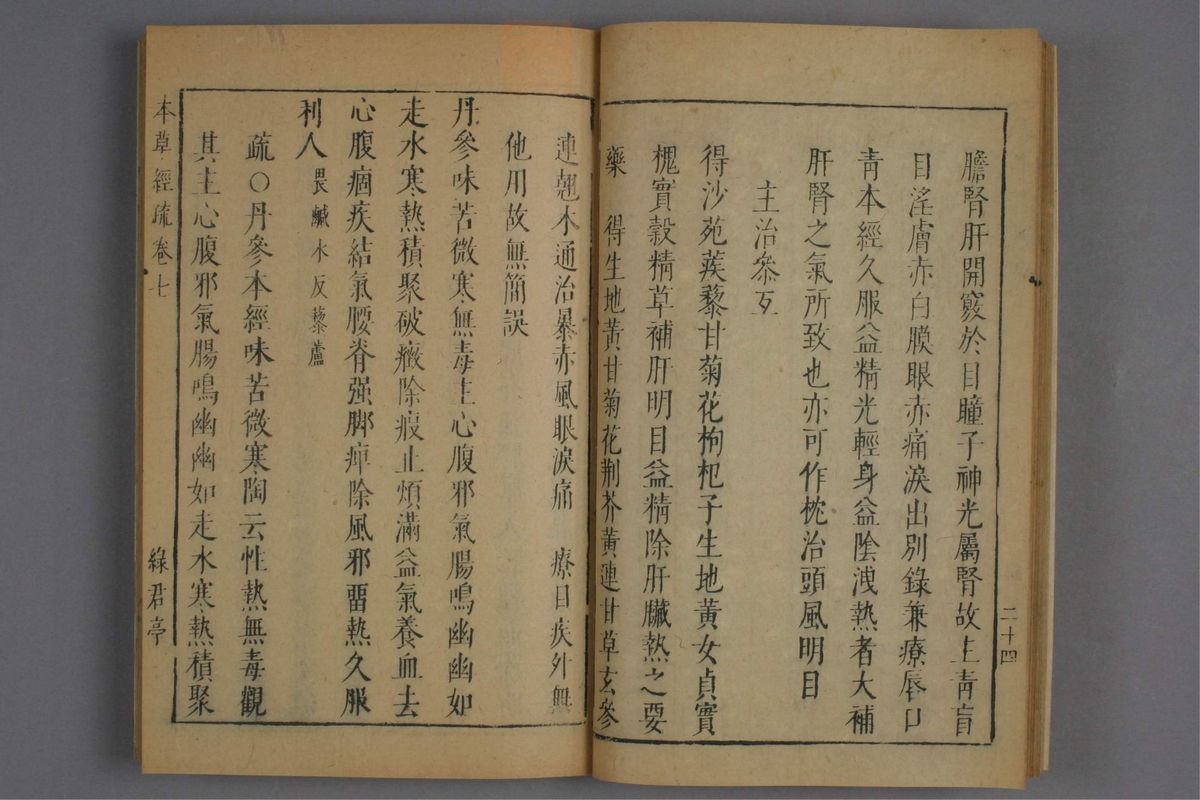 膽腎肝開竅於目瞳子神光屬腎故主靑盲
目淫膚赤白膜眼赤痛淚出別錄兼療唇口
靑本經久服益精光輕身益陰洩熱者大補
肝腎之氣所致也亦可作枕治頭風明目
主治叅互
得沙苑蒺藜甘菊花枸杞子生地黃女貞實
槐實穀精草補肝明目益精除肝臟熱之要
藥　得生地黃甘菊花荆芥黃連甘草玄參
二十四
連翹木通治暴赤風眼淚痛　療目疾外無
他用故無簡誤
丹參味苦微寒無毒主心腹邪氣腸鳴幽幽如
走水寒熱積聚破癥除瘕止煩滿益氣養血去
心腹痼疾結氣腰脊强脚痺除風邪畱熱久服
利人畏鹹水反藜蘆
疏〇丹參本經味苦微寒陶云性熱無毒觀
其主心腹邪氣腸鳴幽幽如走水寒熱積聚
本草經疏卷七
綠君亭